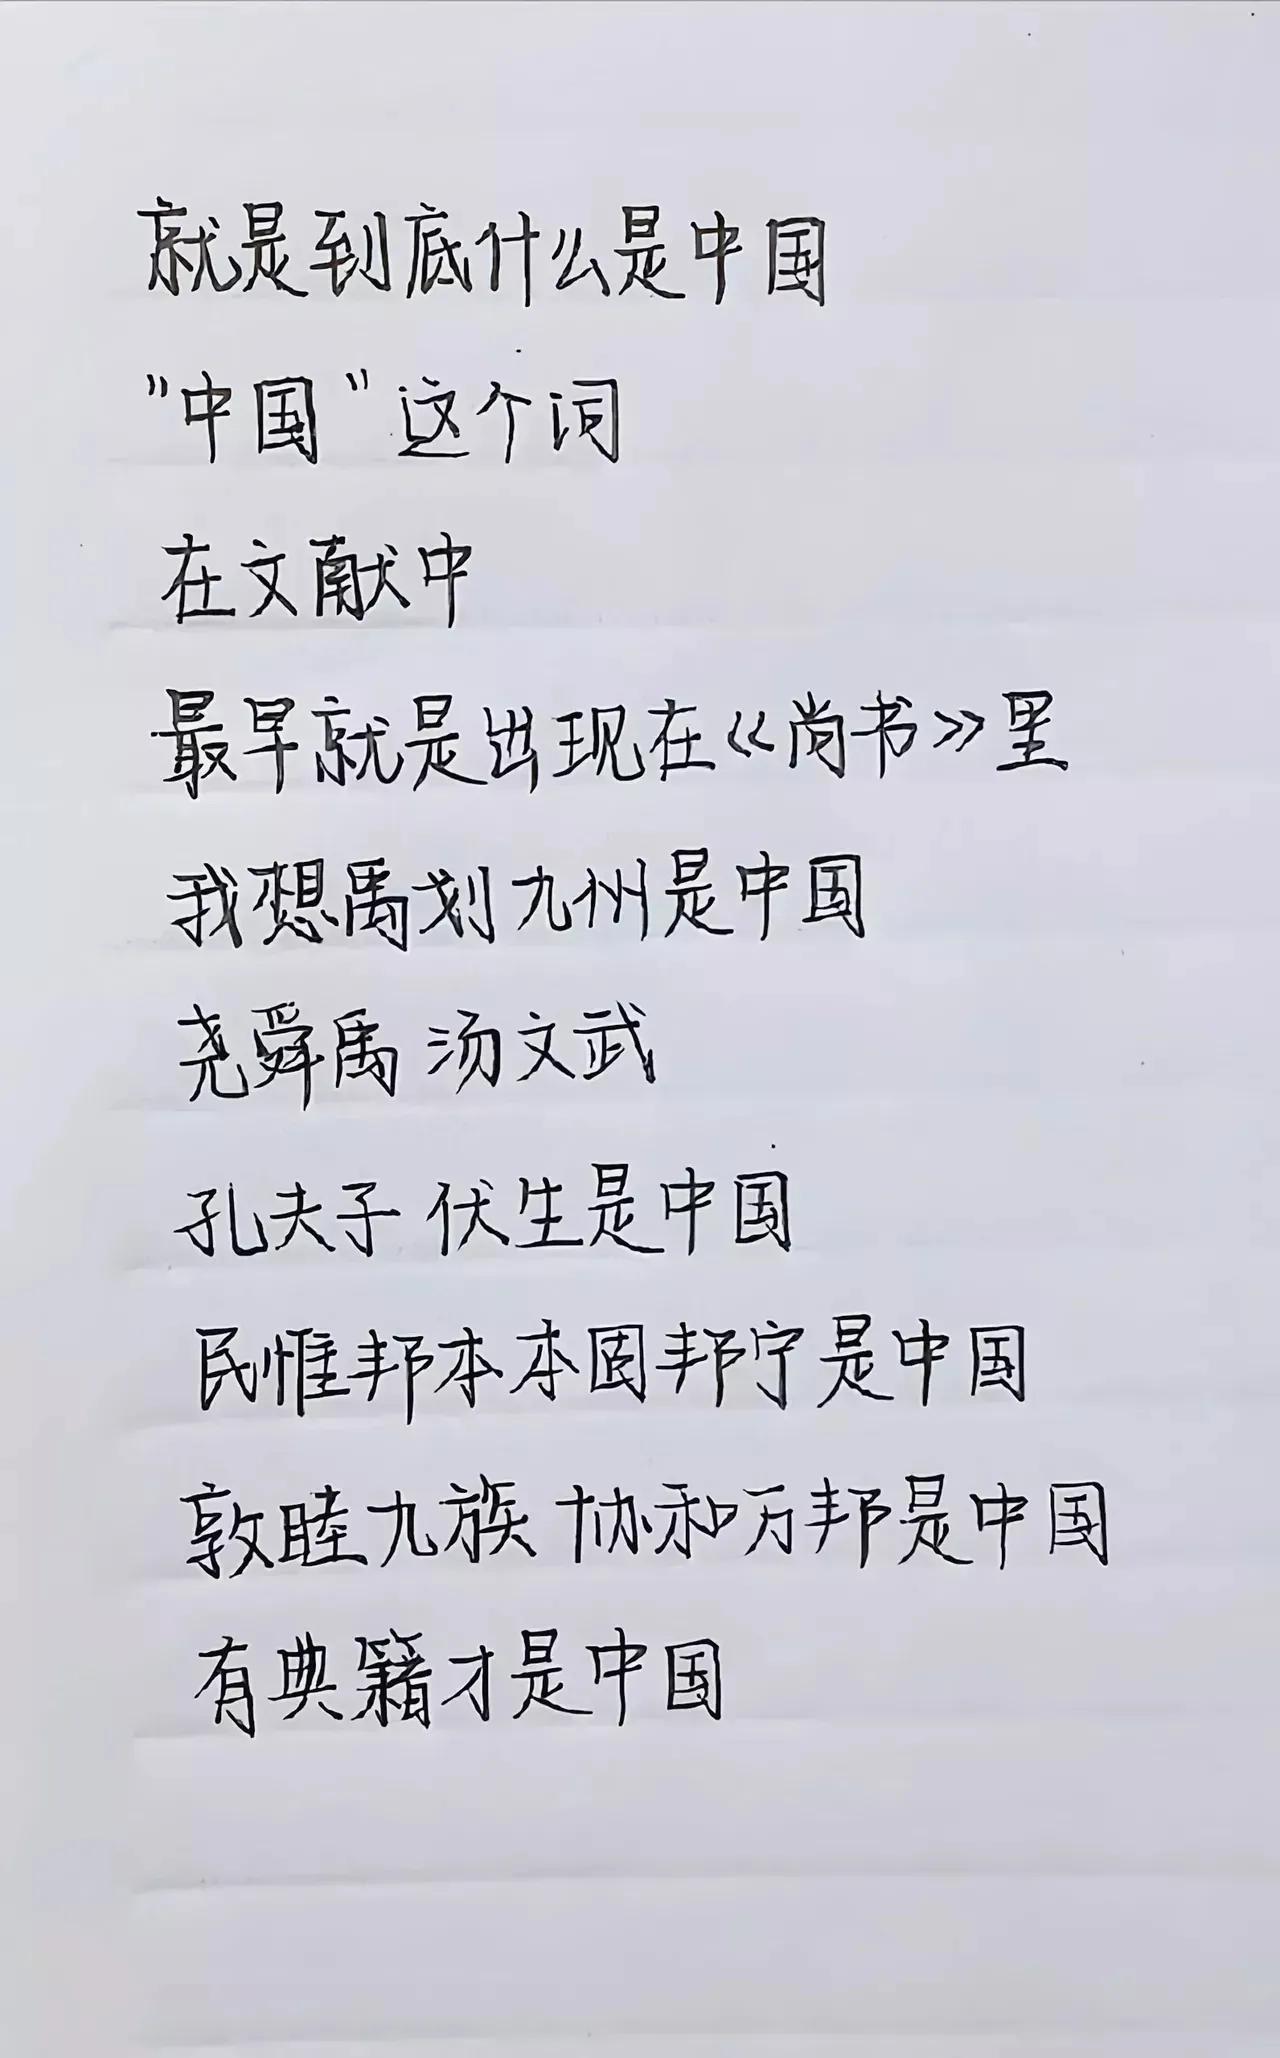 就是到底什么是中国
"中国"这个词
在文献中
最早就是出现在《尚书》里
我想禹划九州是中国
尧舜禹 汤文武
孔夫子 伏生是中国
民惟邦本本固邦宁是中国
敦睦九族 协和万邦是中国
有典籍才是中国